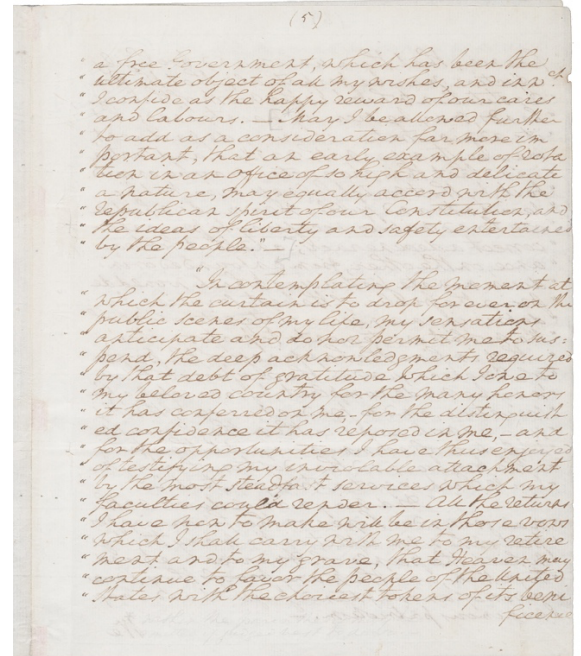 (5)
" a free Government, which has been the
" ultimate object of all my wishes, and in wch
" I confide as the happy reward of our cares
" and labours. — May I be allowed further
" to add as a consideration far more im
" portant, that an early example of rota
" tion in an office of so high and delicate
" a nature, may equally accord with the
" republican spirit of our Constitution, and
" the ideas of liberty and safety entertained
" by the people." —
" In contemplating the moment at
" which the curtain is to drop forever on the
" public scenes of my life, my sensations
" anticipate and do not permit me to sus:
" pend, the deep acknowledgments required
" by that debt of gratitude which I owe to
" my beloved country for the many honors
" it has conferred on me, for the distinguish
" ed confidence it has reposed in me, — and
" for the opportunities I have thus enjoyed
" of testifying my inviolable attachment
" by the most steadfast services which my
" faculties could render. — All the returns
" I have now to make will be in those vows
" which I shall carry with me to my retire
" ment and to my grave, that Heaven may
" continue to favor the people of the United
" States with the choicest tokens of its bene
ficence